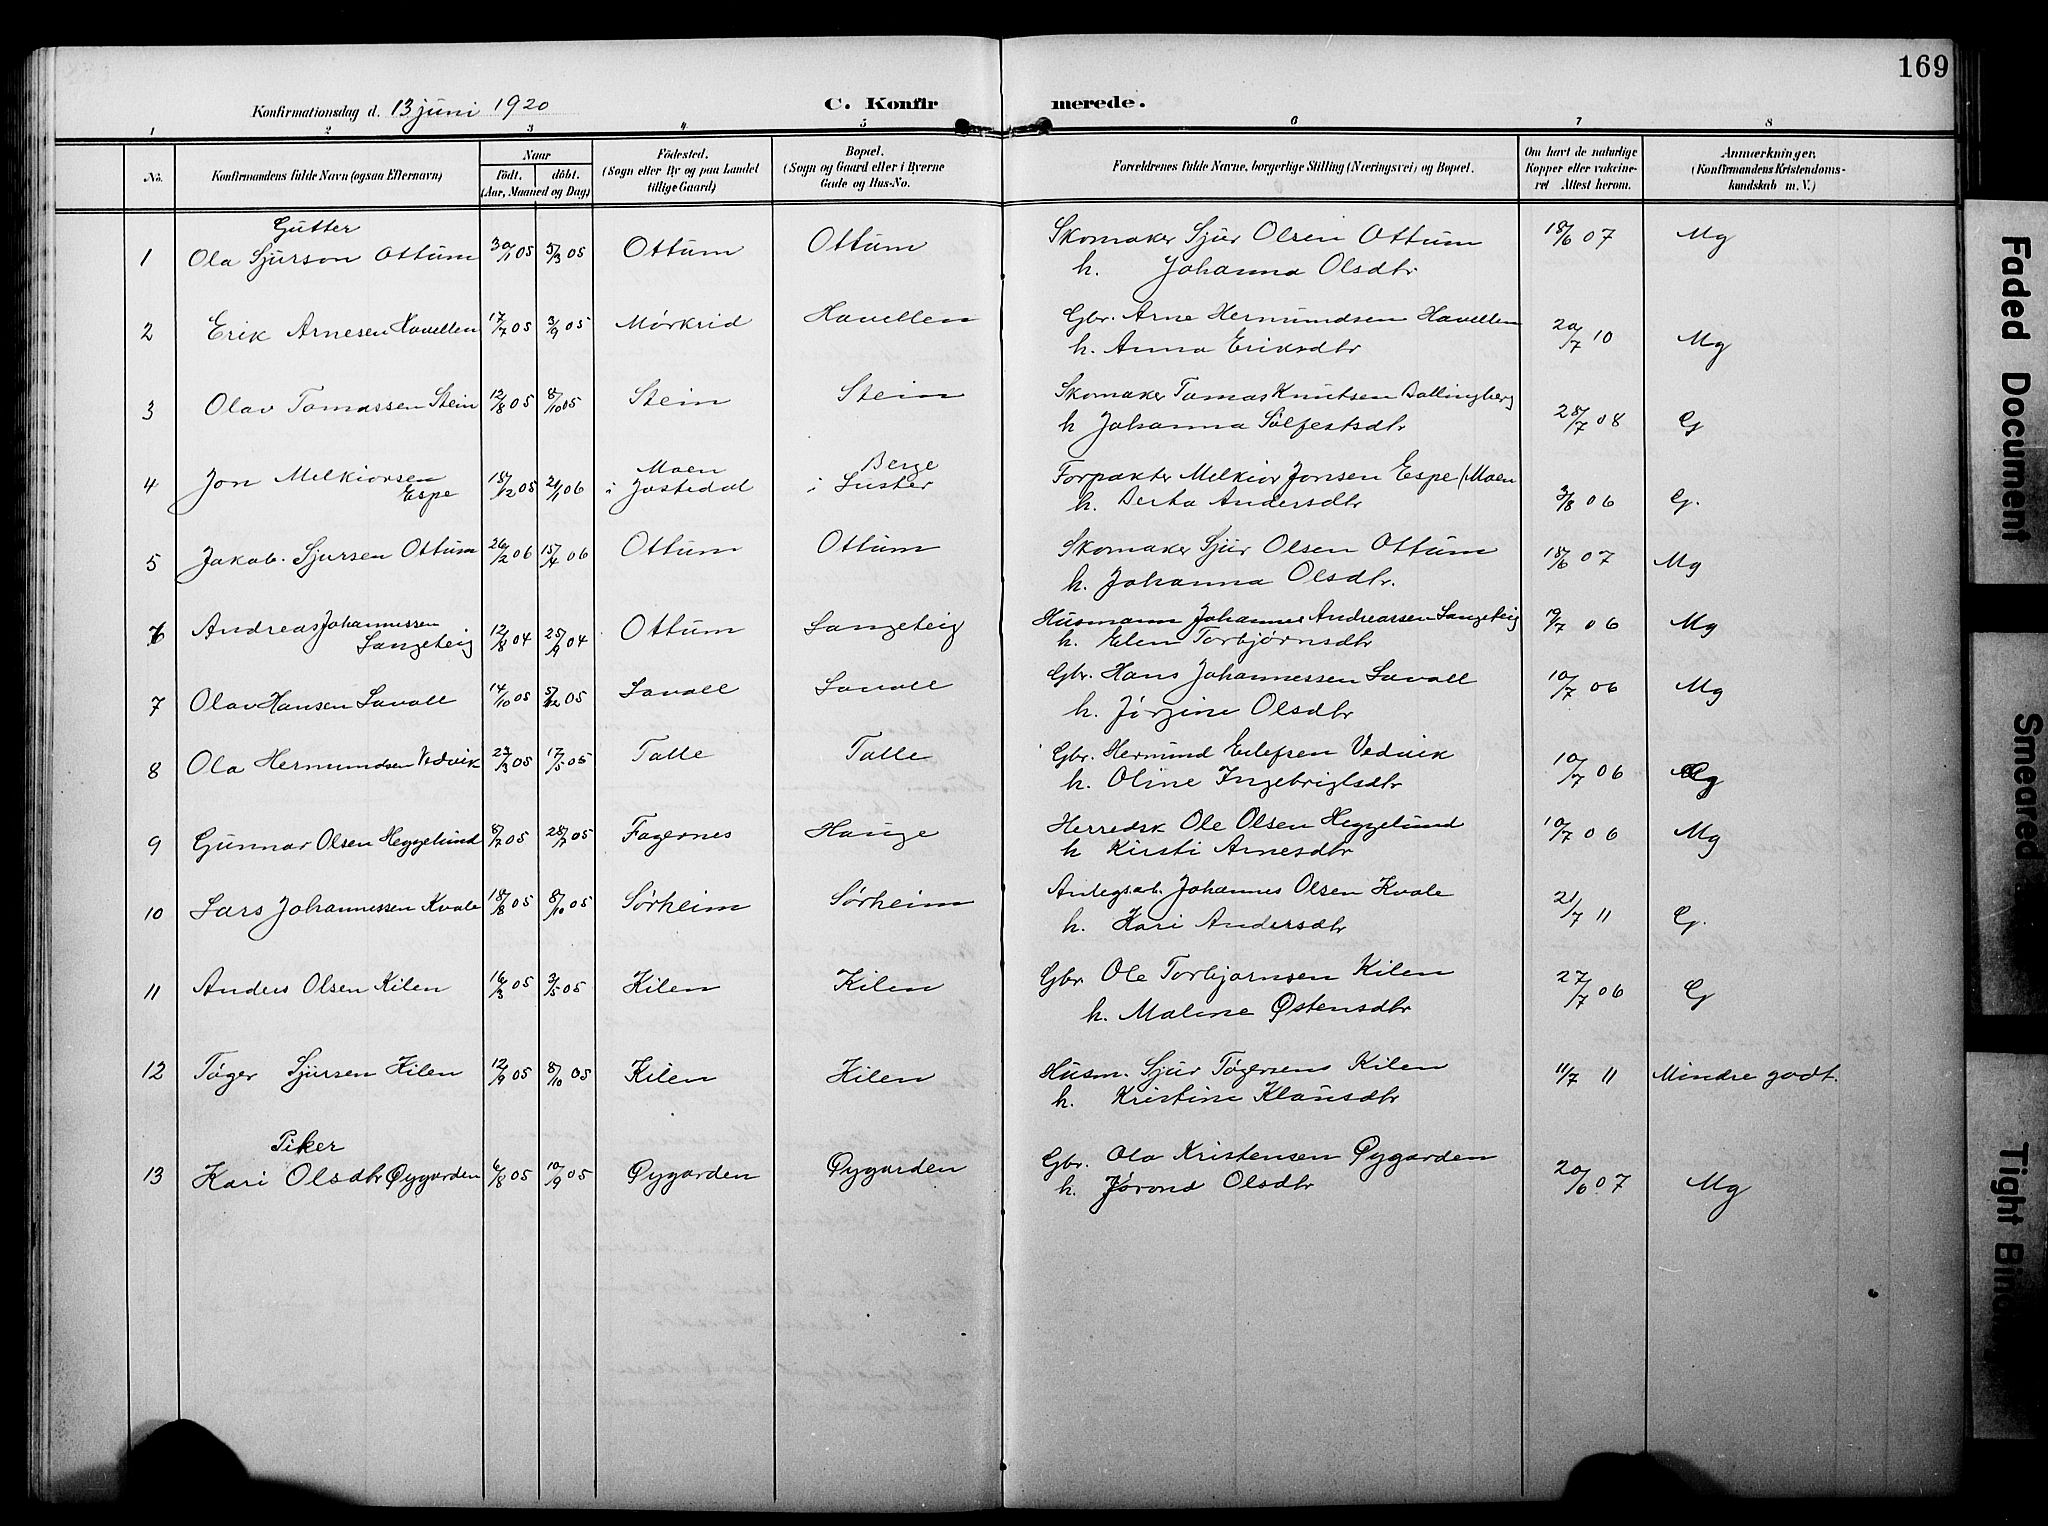 169
Konfirmationsdag d. 13 juni 1920 C. Konfir merede.
1 2 3 4 5 6 7 8
No. Konfirmandens fulde Navn (ogsaa Efternavn) Naar Födt. döbt. (Aar, Maaned og Dag) Födested. (Sogn eller By og paa Landet tillige Gaard) Bopæl. (Sogn og Gaard eller i Byerne Gade og Hus-No. Forældrenes fulde Navne, borgerlige Stilling (Næringsvei) og Bopæl. Om havt de naturlige Kopper eller vakcineret Attest herom. Anmærkninger. (Konfirmandens Kristendomskundskab m. V.)
Gutter
1 Ola Sjurson Ottum 30/1 05 5/3 05 Ottum Ottum Skomaker Sjur Olsen Ottum 18/6 07 Mg
h. Johanna Olsdtr
2 Erik Arnesen Havellen 17/7 05 3/9 05 Mørkrid Havellen Gbr. Arne Hermundsen Havellen 20/7 10 Mg
h. Anna Eriksdtr
3 Olav Tomassen Stein 12/8 05 8/10 05 Stein Stein Skomaker Tomas Knutsen Bollingberg 28/7 08 G
h Johanna Sølfestsdtr
4 Jon Melkiorsen Espe 15/12 05 21/1 06 Moen i Jostedal Berge i Luster Forpakter Melkior Jonsen Espe (Moen 3/8 06 G.
h. Berta Andersdtr
5 Jakob. Sjursen Ottum 26/2 06 15/4 06 Ottum Ottum Skomaker Sjur Olsen Ottum 18/6 07 Mg
h. Johanna Olsdtr.
6 Andreas Johannessen Langeteig 12/8 04 25/9 04 Ottum Langeteig Husmann Johannes Andreassen Langeteig 19/7 06 Mg
h. Elen Torbjørnsdtr
7 Olav Hansen Lavoll 14/10 05 5/12 05 Lavoll Lavoll Gbr. Hans Johannessen Lavoll 10/7 06 Mg
h. Jørgine Olsdtr
8 Ola Hermundsen Vedvik 23/3 05 17/5 05 Talle Talle Gbr. Hermund Eilefsen Vedvik 10/7 06 G
h. Oline Ingebrigtsdtr
9 Gunnar Olsen Heggelund 8/7 05 28/7 05 Fagernes Hauge Herredsk Ole Olsen Heggelund 10/7 06 Mg
h Kirsti Arnesdtr
10 Lars Johannessen Kvale 18/8 05 8/10 05 Sørheim Sørheim Anlegsab. Johannes Olsen Kvale 21/7 11 G.
h. Kari Andersdtr
11 Anders Olsen Kilen 16/3 05 3/5 05 Kilen Kilen Gbr Ole Torbjørnsen Kilen 27/7 06 G
h. Maline Østensdtr
12 Tøger Sjursen Kilen 12/9 05 8/10 05 Kilen Kilen Husm. Sjur Tøgersens Kilen 11/7 11 Mindre godt.
h. Kristine Klausdtr
Piker
13 Kari Olsdtr Øygarden 6/8 05 10/9 05 Øygarden Øygarden Gbr. Ola Kristensen Øygarden 20/6 07 Mg
h. Jørond Olsdtr
Faded Document
Smeared
Tight Bind